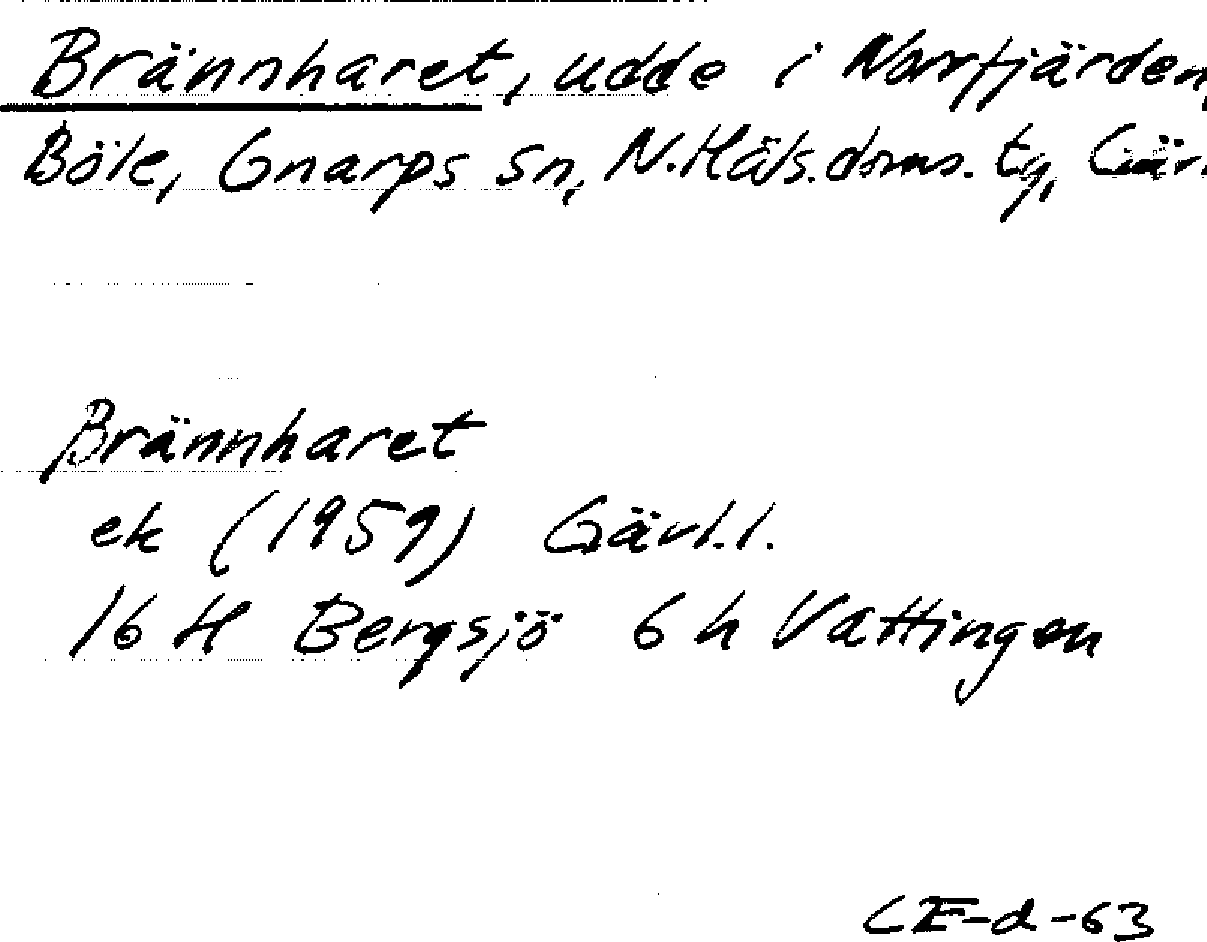 Brännharet, udde i Norrfjärden,
Böle, Gnarps sn, N.Häls.doms. tg, Gäv
Brännharet
ek (1959) Gävl.l.
16 H Bergsjö 6 h Vattingen
CE-d-63